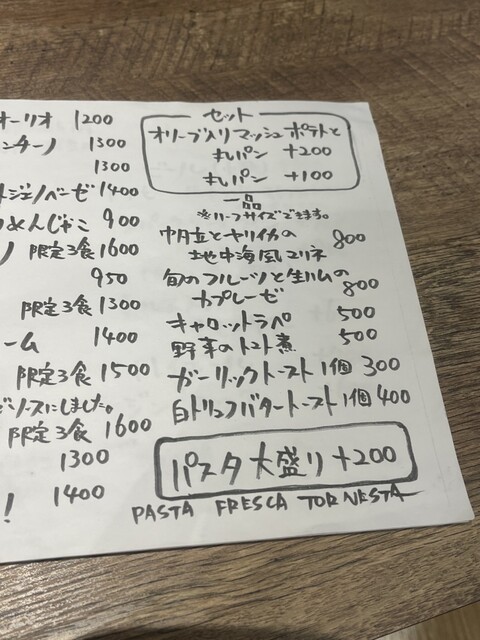 オーリオ 1200
ンチーノ 1300
1300
ジェノベーゼ 1400
めんじゃこ 900
ノ 限定3食 1600
950
限定3食 1300
ーム 1400
限定3食 1500
ソースにしました。
限定3食 1600
1300
! 1400
セット
オリーブ入りマッシュポテトと
丸パン +200
丸パン +100
一品
※ハーフサイズできます。
帆立とヤリイカの
地中海風マリネ 800
旬のフルーツと生ハムの
カプレーゼ 800
キャロットラペ 500
野菜のトマト煮 500
ガーリックトースト1個 300
白トリュフバタートースト1個 400
パスタ大盛り +200
PASTA FRESCA TORNESTA